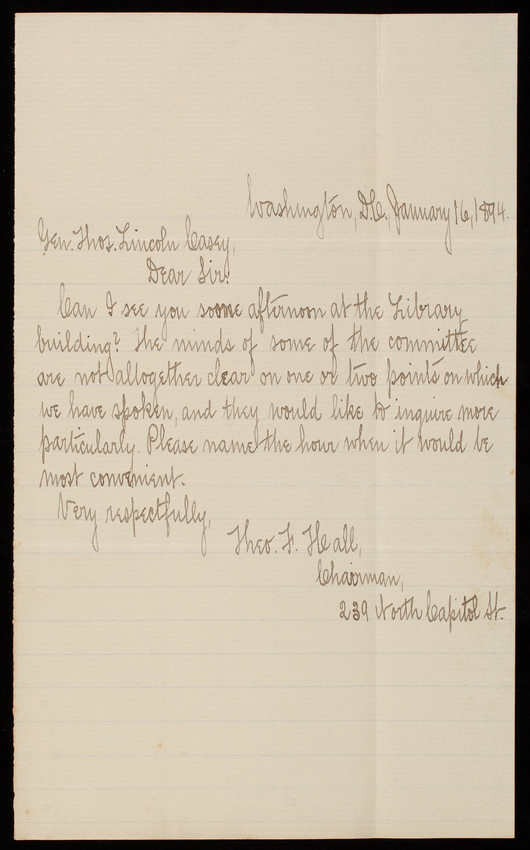 Washington, D.C., January 16, 1894.
Gen. Thos. Lincoln Casey,
Dear Sir:
Can I see you some afternoon at the Library
building? The minds of some of the committee
are not altogether clear on one or two points on which
we have spoken, and they would like to inquire more
particularly. Please name the hour when it would be
most convenient.
Very respectfully,
Theo. F. Hall,
Chairman,
239 North Capitol St.